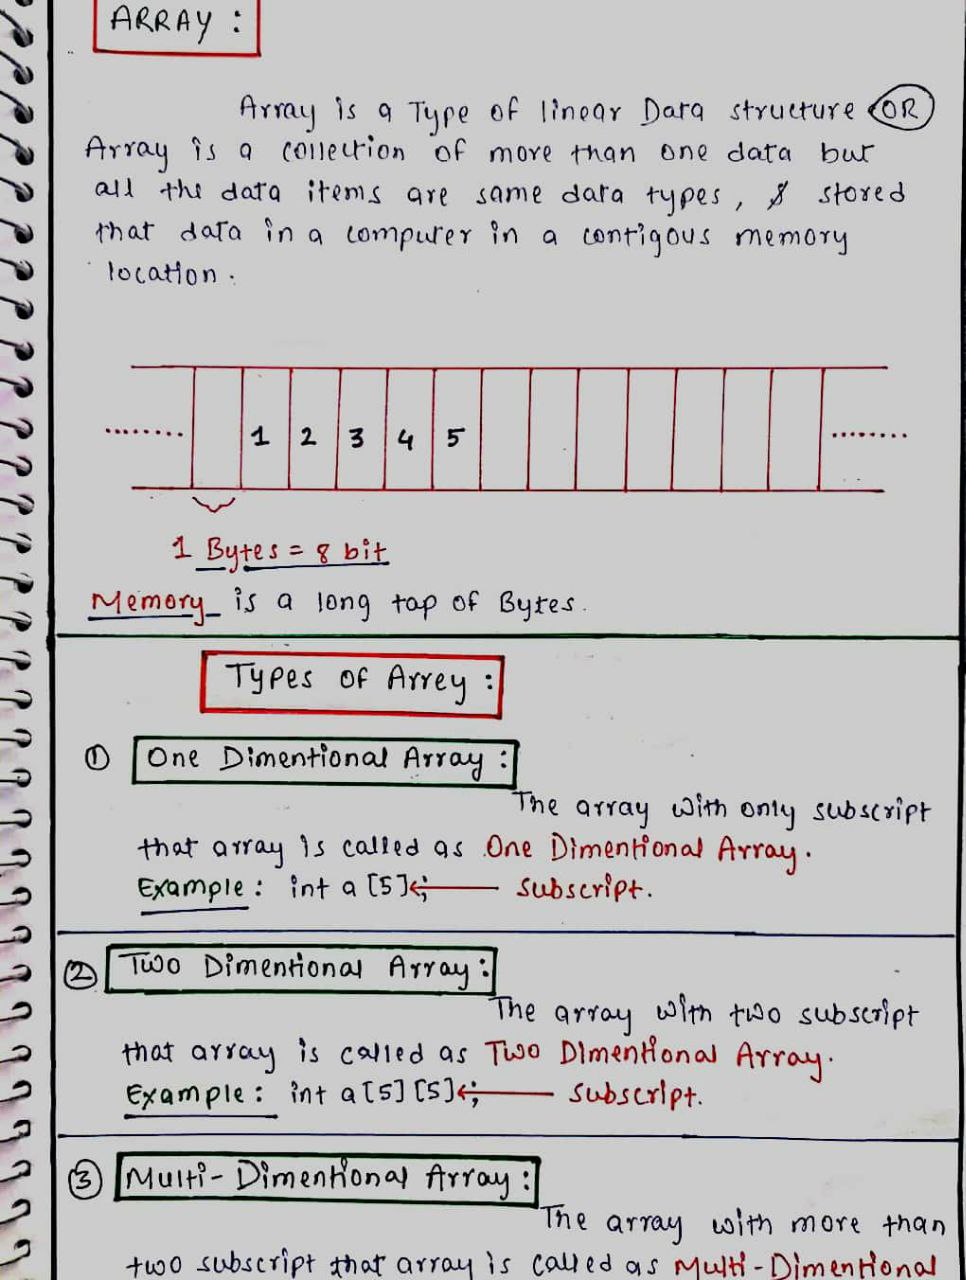 ARRAY :
Array is a Type of linear Data structure OR
Array is a collection of more than one data but
all the data items are same data types, & stored
that data in a computer in a contigous memory
location.
........ 1 2 3 4 5 ........
1 Bytes = 8 bit
Memory is a long tap of Bytes.
Types of Arrey :
① One Dimentional Array :
The array with only subscript
that array is called as One Dimentional Array.
Example : int a [5]; ← subscript.
② Two Dimentional Array :
The array with two subscript
that array is called as Two Dimentional Array.
Example : int a [5] [5]; ← subscript.
③ Multi-Dimentional Array :
The array with more than
two subscript that array is called as Multi-Dimentional